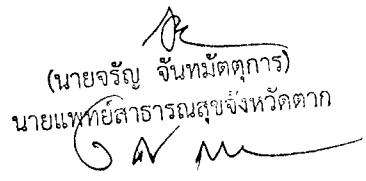 (นายจรัญ จันทมัตตุการ)
นายแพทย์สาธารณสุขจังหวัดตาก